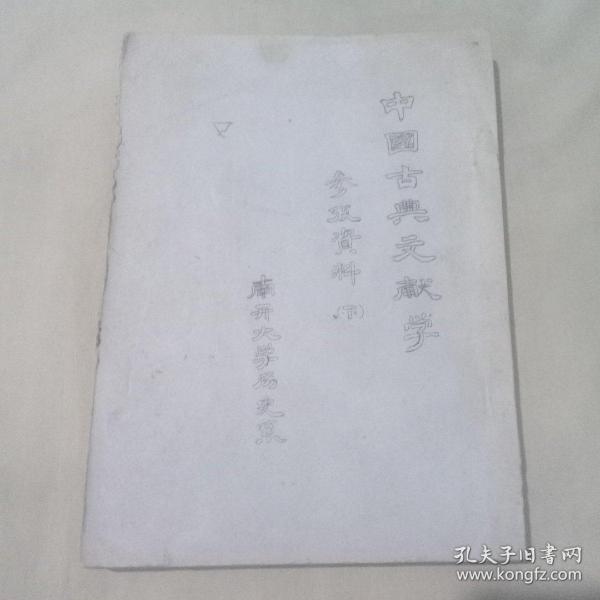 中國古典文献学
参攷資料(下)
南开大学历史系
孔夫子旧书网
www.kongfz.com